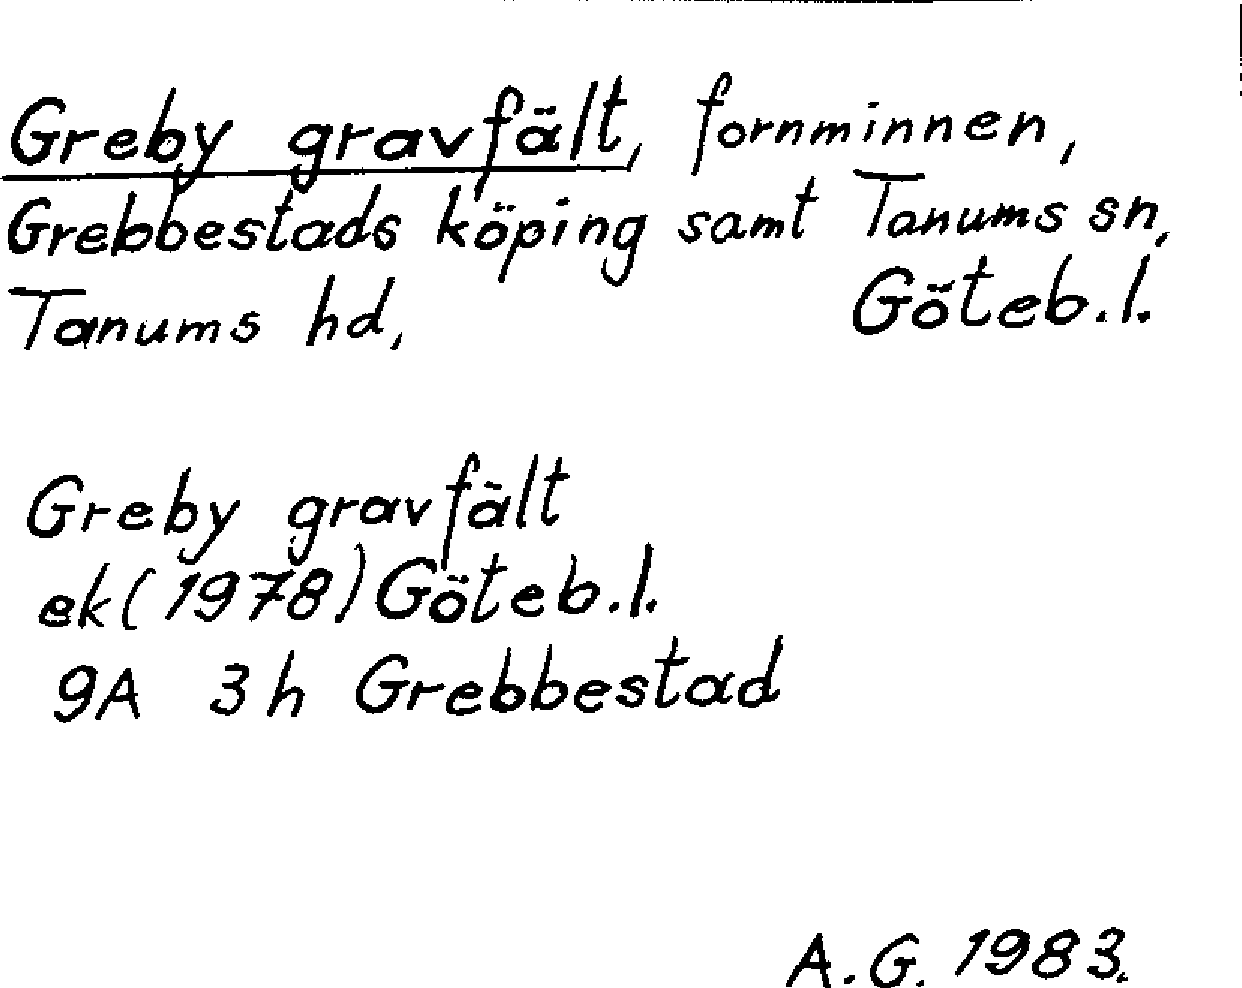 Greby gravfält, fornminnen,
Grebbestads köping samt Tanums sn,
Tanums hd, Göteb.l.
Greby gravfält
ek(1978) Göteb.l.
9A 3h Grebbestad
A.G. 1983.